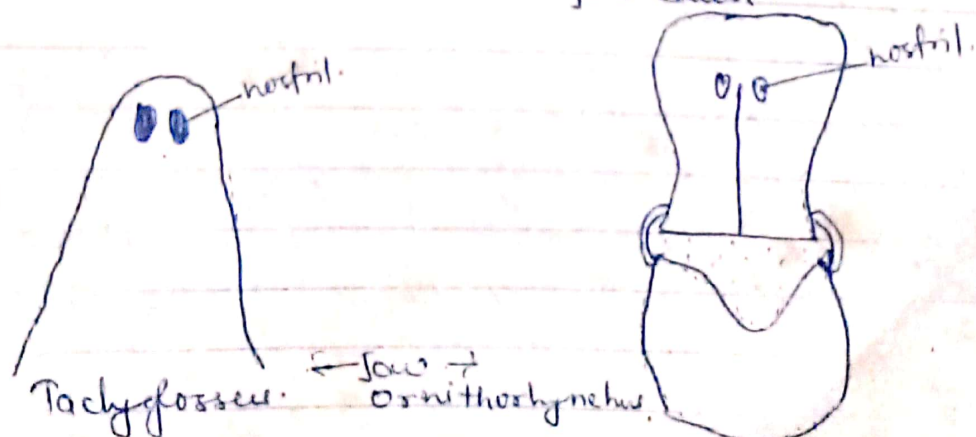 nostril.
nostril.
← Jaw →
Tachyglosseu. Ornithorhynchus